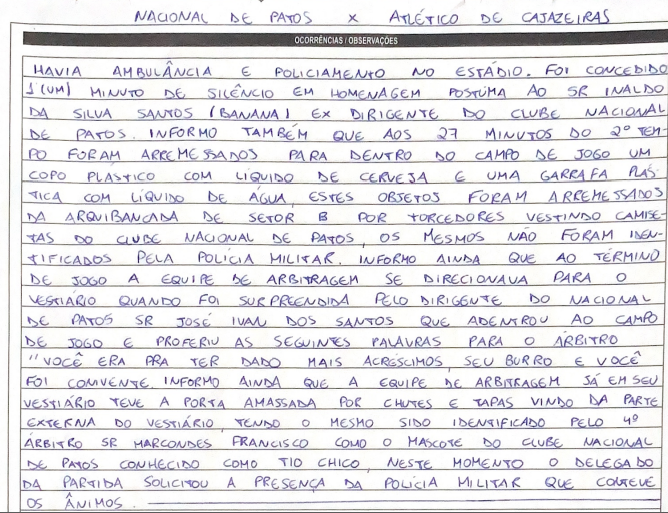 NACIONAL DE PATOS X ATLÉTICO DE CAJAZEIRAS
OCORRÊNCIAS / OBSERVAÇÕES
HAVIA AMBULÂNCIA E POLICIAMENTO NO ESTÁDIO. FOI CONCEDIDO
1 (UM) MINUTO DE SILÊNCIO EM HOMENAGEM POSTUMA AO SR INALDO
DA SILVA SANTOS (BANANA) EX DIRIGENTE DO CLUBE NACIONAL
DE PATOS. INFORMO TAMBÉM QUE AOS 27 MINUTOS DO 2º TEM
PO FORAM ARREMESSADOS PARA DENTRO DO CAMPO DE JOGO UM
COPO PLÁSTICO COM LÍQUIDO DE CERVEJA E UMA GARRAFA PLÁS-
TICA COM LÍQUIDO DE ÁGUA, ESTES OBJETOS FORAM ARREMESSADOS
DA ARQUIBANCADA DE SETOR B POR TORCEDORES VESTINDO CAMISE
TAS DO CLUBE NACIONAL DE PATOS, OS MESMOS NÃO FORAM IDEN-
TIFICADOS PELA POLÍCIA MILITAR. INFORMO AINDA QUE AO TÉRMINO
DE JOGO A EQUIPE DE ARBITRAGEM SE DIRECIONAVA PARA O
VESTIÁRIO QUANDO FOI SURPREENDIDA PELO DIRIGENTE DO NACIONAL
DE PATOS SR JOSÉ IVAN DOS SANTOS QUE ADENTROU AO CAMPO
DE JOGO E PROFERIU AS SEGUINTES PALAVRAS PARA O ÁRBITRO
"VOCÊ ERA PRA TER DADO MAIS ACRÉSCIMOS, SEU BURRO E VOCÊ
FOI CONIVENTE. INFORMO AINDA QUE A EQUIPE DE ARBITRAGEM JÁ EM SEU
VESTIÁRIO TEVE A PORTA AMASSADA POR CHUTES E TAPAS VINDO DA PARTE
EXTERNA DO VESTIÁRIO, TENDO O MESMO SIDO IDENTIFICADO PELO 4º
ÁRBITRO SR MARCONDES FRANCISCO COMO O MASCOTE DO CLUBE NACIONAL
DE PATOS CONHECIDO COMO TIO CHICO, NESTE MOMENTO O DELEGADO
DA PARTIDA SOLICITOU A PRESENÇA DA POLÍCIA MILITAR QUE CONTEVE
OS ÂNIMOS.